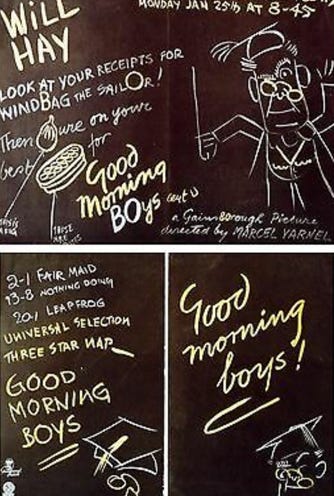 WiLL
HAY
MONDAY JAN 25th AT 8-45
LOOK AT YOUR RECEIPTS FOR
WINDBAG THE SAILOR!
Then ure on your
best for
Good
Morning
BOys
a Gainsborough Picture
directed by MARCEL VARNEL
THIS IS
THESE
ARE
2-1 FAIR MAID
13-8 NOTHING DOING
20-1 LEAPFROG
UNIVERSAL SELECTION
THREE STAR NAP
GOOD
MORNING
BOYS
Good
morning
boys!